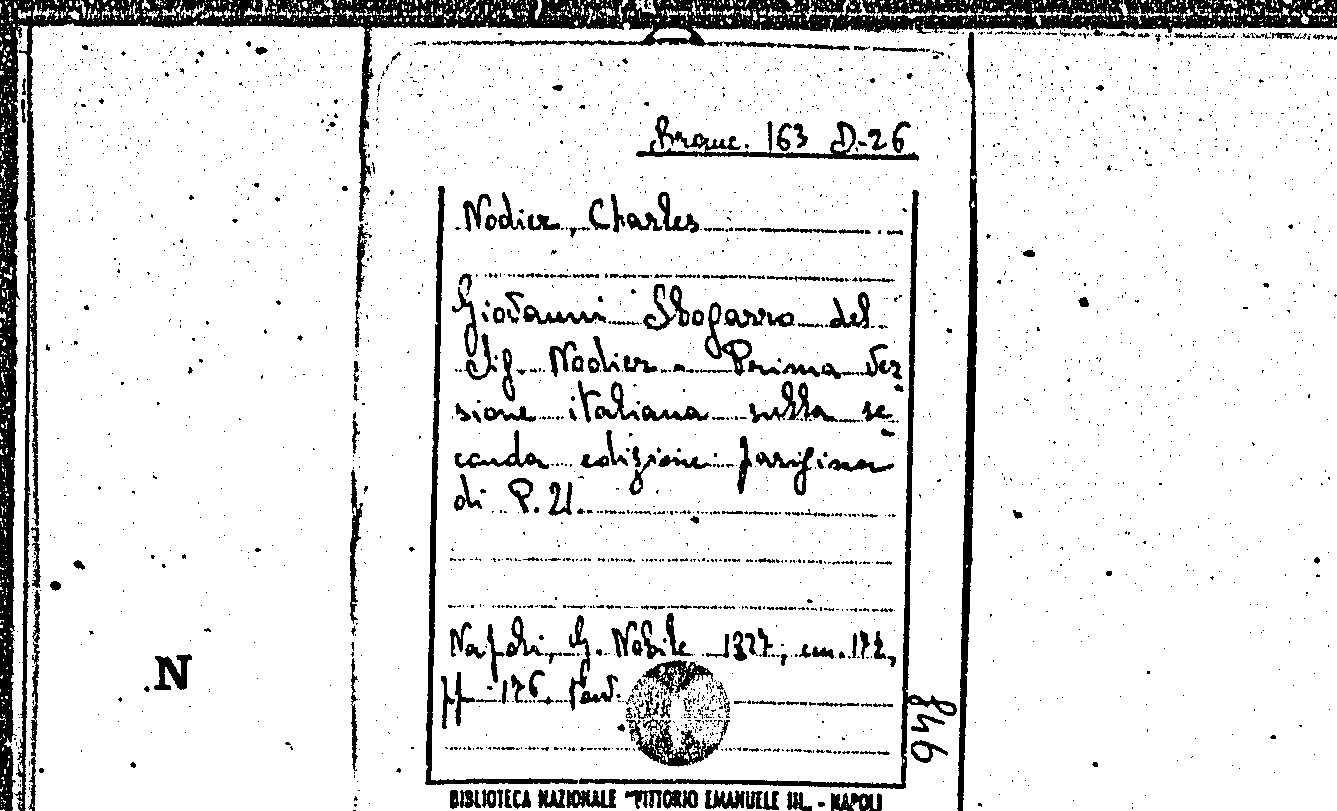 Branc. 163 D-26
Nodier, Charles
Giovanni Sbogarro del
Sig. Nodier - Prima ver-
sione italiana sulla se-
conda edizione parigina
di P. 21.
Napoli, G. Nobile 1827, cm. 17 2,
pp. 176.
N
846
BIBLIOTECA NAZIONALE "VITTORIO EMANUELE III„ - NAPOLI